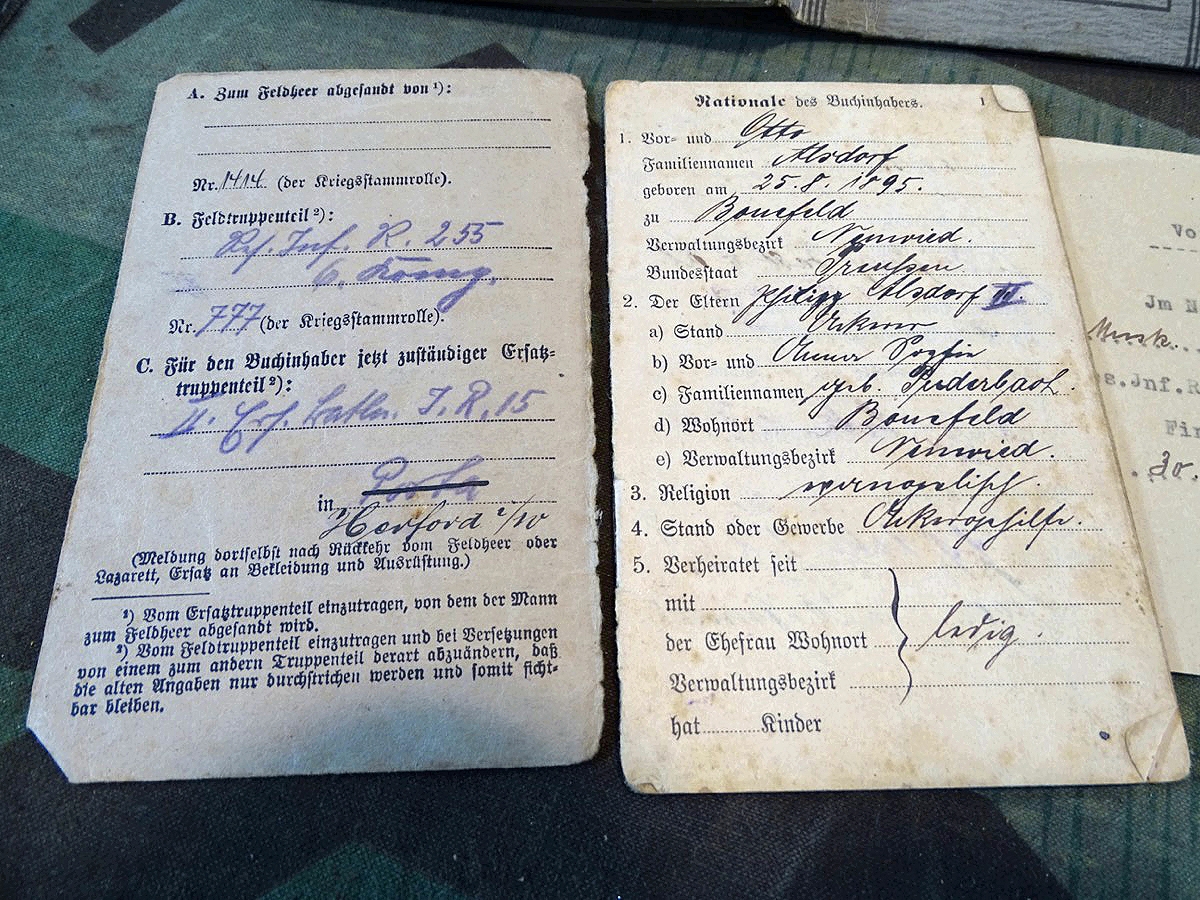 A. Zum Feldheer abgesandt von ¹):
Nr. 1414 (der Kriegsstammrolle).
B. Feldtruppenteil ²):
Res. Inf. R. 255
6. Komp.
Nr. 777 (der Kriegsstammrolle).
C. Für den Buchinhaber jetzt zuständiger Ersatz-
truppenteil ²):
II. Ers. Batln. I.R. 15
in Porta
Herford
(Meldung dortselbst nach Rückkehr vom Feldheer oder
Lazarett, Ersatz an Bekleidung und Ausrüstung.)
¹) Vom Ersatztruppenteil einzutragen, von dem der Mann
zum Feldheer abgesandt wird.
²) Vom Feldtruppenteil einzutragen und bei Versetzungen
von einem zum andern Truppenteil derart abzuändern, daß
die alten Angaben nur durchstrichen werden und somit sicht-
bar bleiben.
Nationale des Buchinhabers. 1
1. Vor- und Otto
Familiennamen Alsdorf
geboren am 25. 8. 1895.
zu Bonefeld
Verwaltungsbezirk Neuwied.
Bundesstaat Preußen
2. Der Eltern Philipp Alsdorf III.
a) Stand Ackerer
b) Vor- und Anna Sophie
c) Familiennamen geb. Puderbach.
d) Wohnort Bonefeld
e) Verwaltungsbezirk Neuwied.
3. Religion evangelisch.
4. Stand oder Gewerbe Ackergehilfe.
5. Verheiratet seit
mit
der Ehefrau Wohnort ledig.
Verwaltungsbezirk
hat Kinder
Vo
Jm N
Musk.
s.Jnf.R
Fir
30.